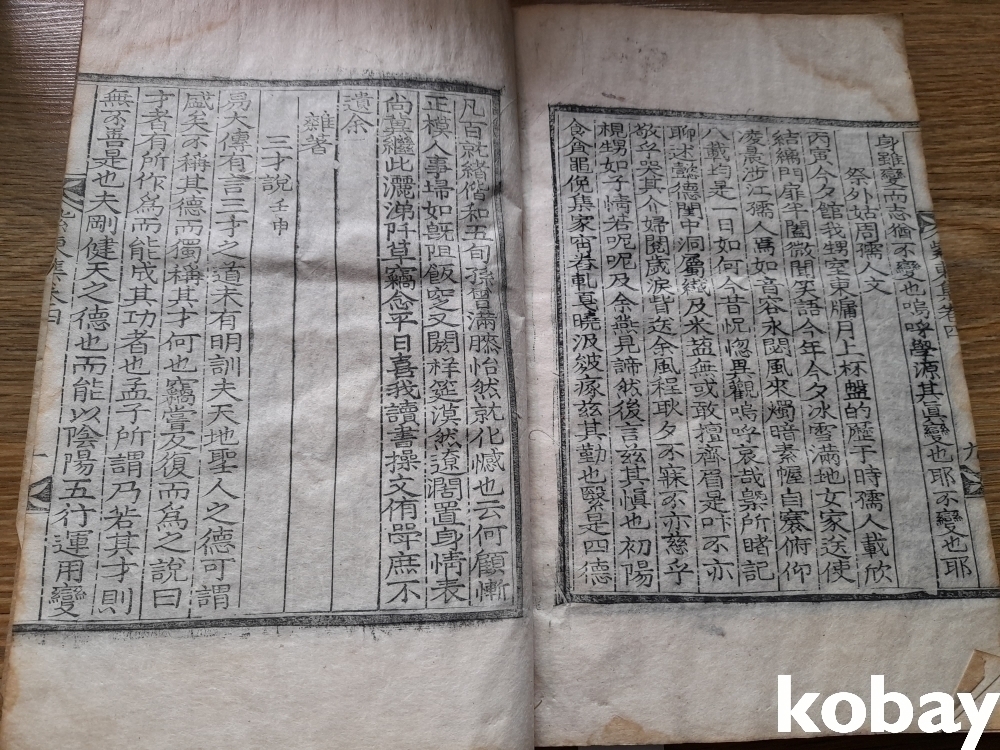 身雖變而志猶不變也嗚呼學源其眞變也耶不變也耶
祭外姑周孺人文
丙寅今夕館我甥室東牖月上杯盤的歷于時孺人載欣
結縭門扉半闔微聞笑語今年今夕冰雪滿地女家送使
凌晨涉江孺人焉如音容永閟風來燭暗素幄自褰俯仰
八載均是一日如何今昔怳惚異觀嗚呼哀哉槩所睹記
聊述懿德閨中洞屬織及米藍無或敢擅齊眉是吁不亦
敬乎哭其介婦閱歲淚皆送余風程耿夕不寐不亦慈乎
視甥如子情若呢呢及余燕見諦然後言玆其愼也初陽
食食黽俛集家宙若軋戛曉汲皴瘃玆其勤也緊是四德
紫東集卷四
九
凡百就緖偕和五旬孫曾滿膝怡然就化憾也云何顧慚
正模人事埽如旣阻飯窆又闕祥筵漠然遼濶置身情表
尙冀繼此灑涕阡草竊念平日喜我讀書操文侑學庶不
遺余
雜著
三才說 壬申
易大傳有言三才之道未有明訓夫天地聖人之德可謂
盛矣不稱其德而獨稱其才何也竊嘗反復而爲之說曰
才者有所作爲而能成其功者也孟子所謂乃若其才則
無不善是也夫剛健天之德也而能以陰陽五行運用變